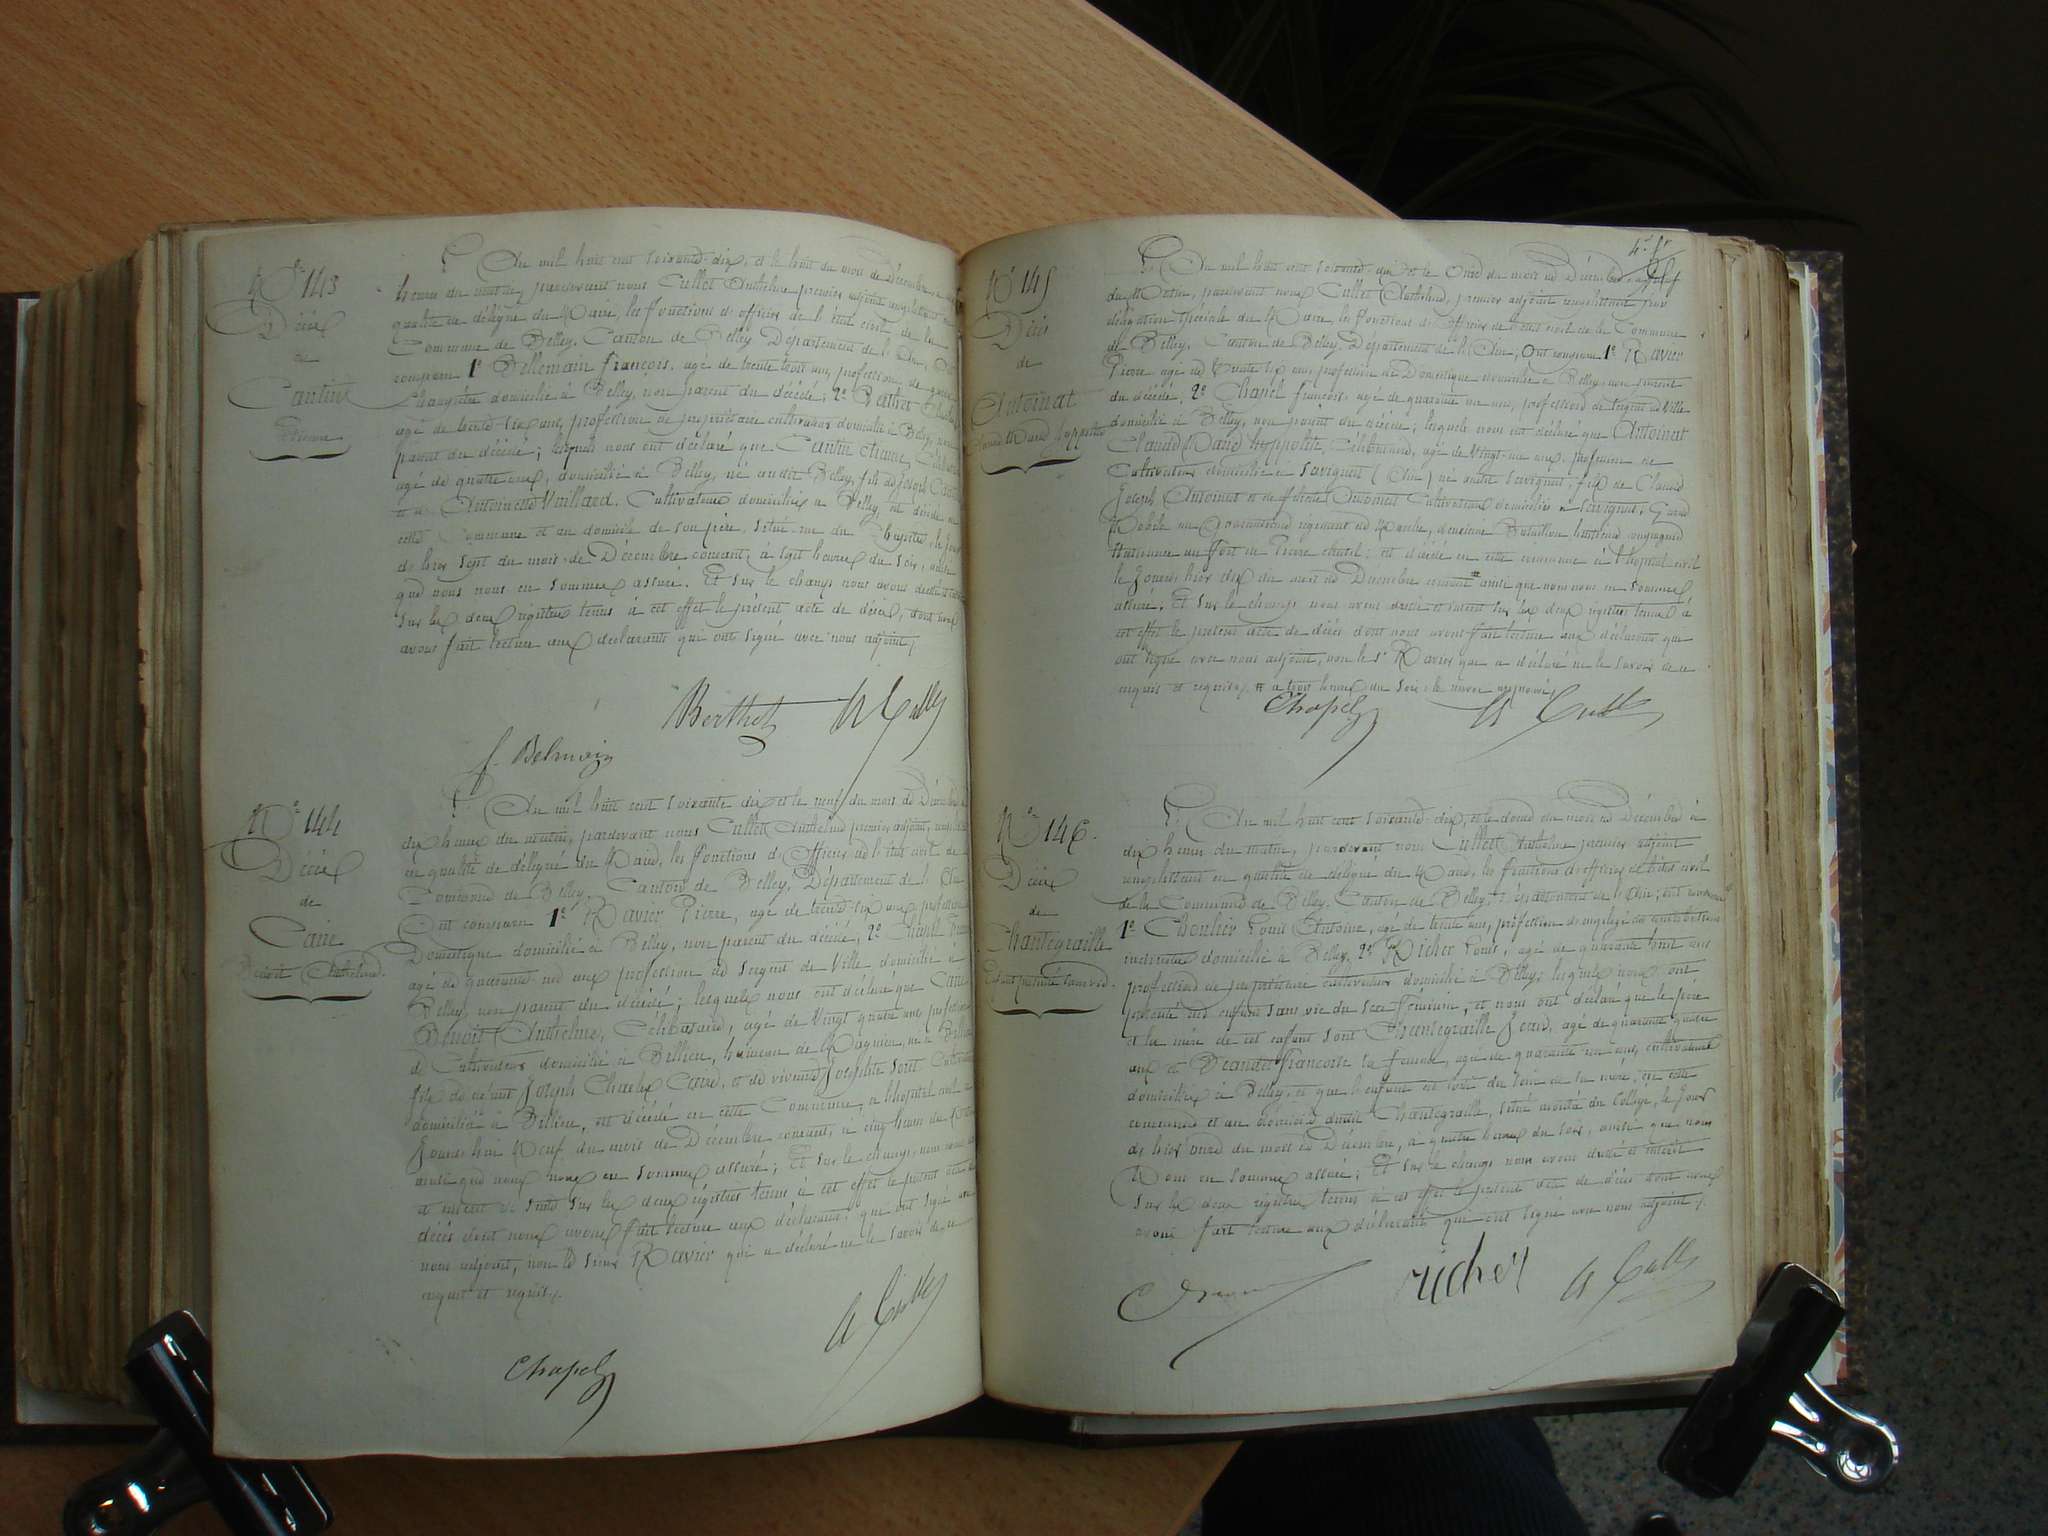 N° 143
Décès
de
Cantin
Etienne
L'An mil huit cent soixante-dix, et le huit du mois de Décembre
heures du matin, pardevant nous Cullet Anthelme premier adjoint remplissant en
qualité de délégué du Maire, les fonctions d'officier de l'état civil de la
Commune de Belley, Canton de Belley Département de l'Ain, Ont
comparu 1° Bellemain François, agé de trente trois ans, profession de
domicilié à Belley, non parent du décédé, 2° Berthet
agé de trente-six ans, profession de propriétaire cultivateur domicilié à Belley, non
parent du décédé; lesquels nous ont déclaré que Cantin Etienne,
agé de quatre ans, domicilié à Belley, né audit Belley, fils de Joseph Cantin
et de Antoinette Vuillard, Cultivateurs domiciliés à Belley, est décédé en
cette Commune et au domicile de son père, situé rue du Chapitre, le jour
de hier sept du mois de Décembre courant, à sept heures du soir, ainsi
que nous nous en sommes assuré. Et sur le champ nous avons
sur les deux registres tenus à cet effet le présent acte de décès, dont nous
avons fait lecture aux déclarants qui ont signé avec nous adjoint,
Berthet A Cullet
f. Belmain
N° 144
Décès
de
Caire
Benoit Anthelme.
L'An mil huit cent soixante dix et le neuf du mois de Décembre à
dix heures du matin, pardevant nous Cullet Anthelme premier adjoint,
en qualité de délégué du Maire, les fonctions d'officier de l'état civil de la
Commune de Belley, Canton de Belley, Département de l'Ain
Ont comparu 1° Ravier Pierre, agé de trente-six ans profession
Domestique domicilié à Belley, non parent du décédé, 2° Chapel
agé de quarante un ans profession de sergent de Ville domicilié à
Belley, non parent du décédé; lesquels nous ont déclaré que Caire
Benoit Anthelme, Célibataire, agé de Vingt quatre ans profession
de Cultivateur domicilié à Billieu, hameau de Magnieu, né à Billieu
fils de défunt Joseph Charles Caire, et de vivante Josephte
domiciliée à Billieu, est décédé en cette Commune, à l'hopital civil
Jourd'hui Neuf du mois de Décembre courant, à cinq heures du
ainsi que nous nous en sommes assuré; Et sur le champ, nous avons
et inscrit de suite sur les deux registres tenus à cet effet le présent acte de
décès dont nous avons fait lecture aux déclarants qui ont signé avec
nous adjoint, non le sieur Ravier qui a déclaré ne le savoir de ce
enquis et requis.
A Cullet
Chapel
N° 145
Décès
de
Antoinat
Claude Marie hyppolite
L'An mil huit cent soixante-dix et le Onze du mois de Décembre à
du Matin, pardevant nous Cullet Anthelme, premier adjoint remplissant par
délégation spéciale du Maire, les fonctions d'officier de l'état civil de la Commune
de Belley, Canton de Belley, Département de l'Ain; Ont comparu 1° Ravier
Pierre agé de trente six ans, profession de Domestique domicilié à Belley, non parent
du décédé, 2° Chapel françois, agé de quarante un ans, profession de sergent de Ville
domicilié à Belley, non parent du décédé; lesquels nous ont déclaré que Antoinat
Claude Marie hyppolite, Célibataire, agé de Vingt-un ans, profession de
Cultivateur domicilié à Savignat (Ain) né audit Savignat, fils de Claude
Joseph Antoinat et de Antoinat Cultivateurs domiciliés à Savignat, Garde
Mobile au régiment de Marche, deuxième Bataillon compagnie
Stationnée au fort de Pierre chatel; est décédé en cette commune à l'hopital civil
le Jour de hier dix du mois de Décembre courant # ainsi que nous nous en sommes
assuré; Et sur le champ nous avons dressé et inscrit sur les deux registres tenus à
cet effet le présent acte de décès dont nous avons fait lecture aux déclarants qui
ont signé avec nous adjoint, non le Sr Ravier qui a déclaré ne le savoir de ce
enquis et requis. # à trois heures du soir; le renvoi approuvé;
Chapel A Cullet
N° 146.
Décès
de
Chantegraille
Enfant présenté sans vie.
L'An mil huit cent soixante-dix, et le douze du mois de Décembre à
dix heures du matin, pardevant nous Cullet Anthelme premier adjoint
remplissant en qualité de délégué du Maire, les fonctions d'officier de l'état civil
de la Commune de Belley, Canton de Belley, Département de l'Ain; ont comparu
1° Chentier Louis Antoine, agé de trente ans, profession d'employé des contributions
indirectes domicilié à Belley, 2° Richer Louis, agé de quarante huit ans
profession de propriétaire cultivateur domicilié à Belley; lesquels nous ont
présenté un enfant sans vie du sexe féminin, et nous ont déclaré que le père
et la mère de cet enfant sont Chantegraille Jean, agé de quarante quatre
ans et Beaudet françoise sa femme, agée de quarante un ans, cultivateurs
domiciliés à Belley, et que l'enfant est sorti du sein de sa mère, en cette
commune et au domicile dudit Chantegraille, situé montée du College, le Jour
de hier onze du mois de Décembre, à quatre heures du soir, ainsi que nous
Nous en sommes assuré; Et sur le champ nous avons dressé et inscrit
sur les deux registres tenus à cet effet le présent acte de décès dont nous
avons fait lecture aux déclarants qui ont signé avec nous adjoint;
richer A Cullet